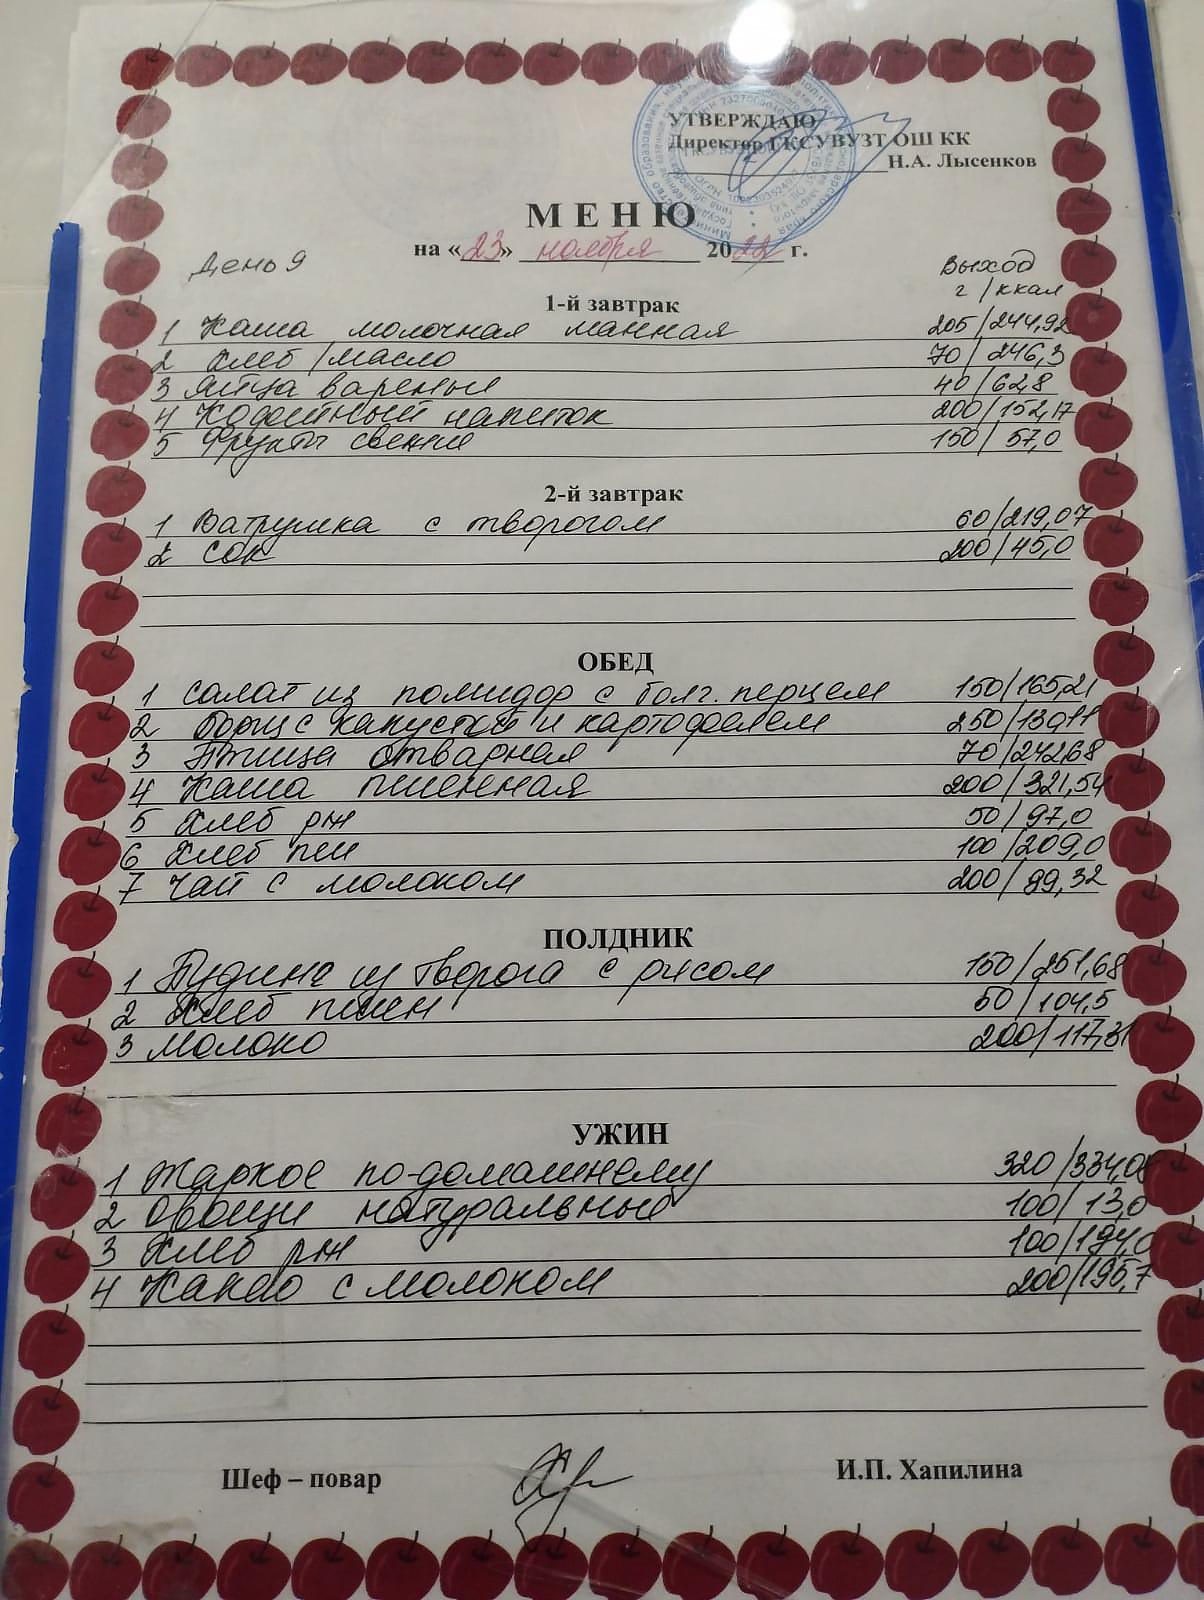 УТВЕРЖДАЮ
Директор ГКСУВУЗТ ОШ КК
Н.А. Лысенков
МЕНЮ
на «23» ноября 2022 г.
День 9
Выход
г/ккал
1-й завтрак
1 Каша молочная манная 205/244,92
2 Хлеб/масло 70/246,3
3 Яйца вареные 40/62,8
4 Кофейный напиток 200/152,17
5 Фрукты свежие 150/57,0
2-й завтрак
1 Ватрушка с творогом 60/219,07
2 Сок 200/45,0
ОБЕД
1 Салат из помидор с болг. перцем 150/165,21
2 Борщ с капустой и картофелем 250/139,11
3 Птица отварная 70/242,68
4 Каша пшенная 200/321,54
5 Хлеб рж 50/97,0
6 Хлеб пш 100/209,0
7 Чай с молоком 200/99,32
ПОЛДНИК
1 Пудинг из творога с рисом 150/251,68
2 Хлеб пшен 50/104,5
3 Молоко 200/117,31
УЖИН
1 Жаркое по-домашнему 320/334,08
2 Овощи натуральные 100/13,0
3 Хлеб рж 100/194,0
4 Какао с молоком 200/195,7
Шеф – повар И.П. Хапилина